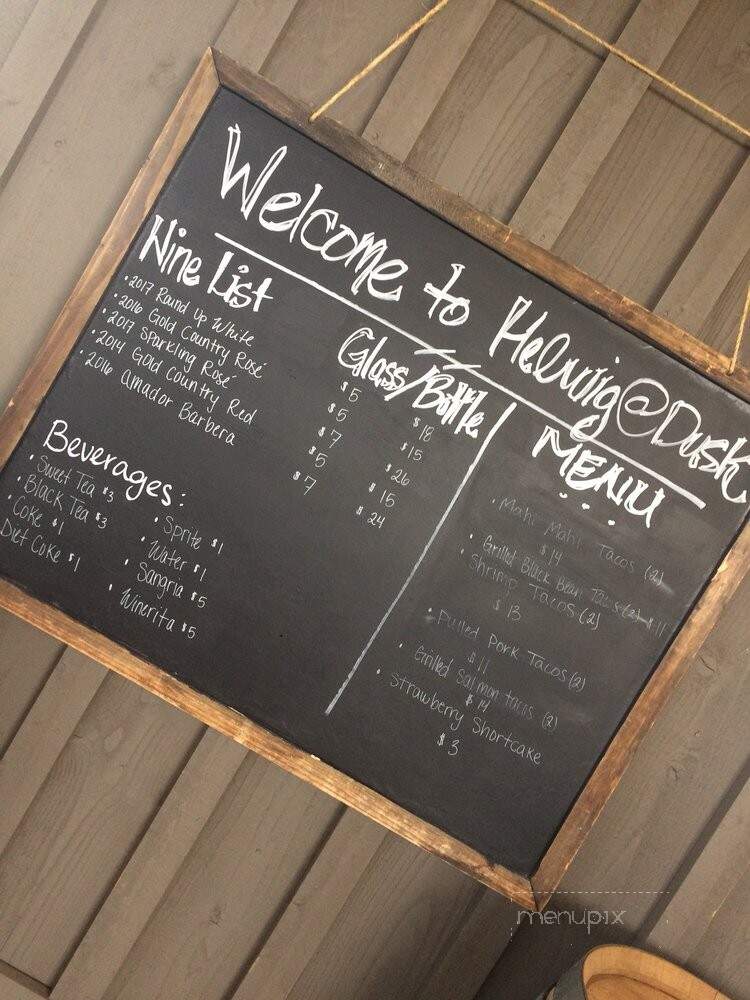 Welcome to Helwig@Dusk
Wine List
Glass/Bottle
• 2017 Round Up White $5 $18
• 2016 Gold Country Rosé $5 $15
• 2017 Sparkling Rosé $7 $26
• 2014 Gold Country Red $5 $15
• 2016 Amador Barbera $7 $24
Beverages:
• Sweet Tea $3
• Black Tea $3
• Coke $1
Diet Coke $1
• Sprite $1
• Water $1
• Sangria $5
• Winerita $5
MENU
• Mahi Mahi Tacos (2)
$14
• Grilled Black Bean Tacos (2) $11
• Shrimp Tacos (2)
$13
• Pulled Pork Tacos (2)
$11
• Grilled Salmon tacos (2)
$14
• Strawberry Shortcake
$3
menupix